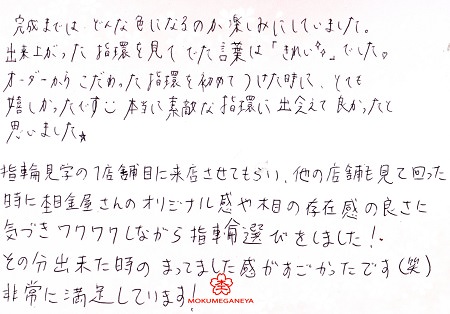 完成までは、どんな色になるのか楽しみにしていました。
出来上がった指環を見てでた言葉は「きれいだな」でした。
オーダーからこだわった指環を初めてつけた時に、とても
嬉しかったです 本当に素敵な指環に出会えて良かったと
思いました★
指輪見学の1店舗目に来店させてもらい、他の店舗も見て回った
時に杢目金屋さんのオリジナル感や木目の存在感の良さに
気づきワクワクしながら指輪選びをしました!
その分出来た時のまってました感がすごかったです(笑)
非常に満足しています!
MOKUMEGANEYA